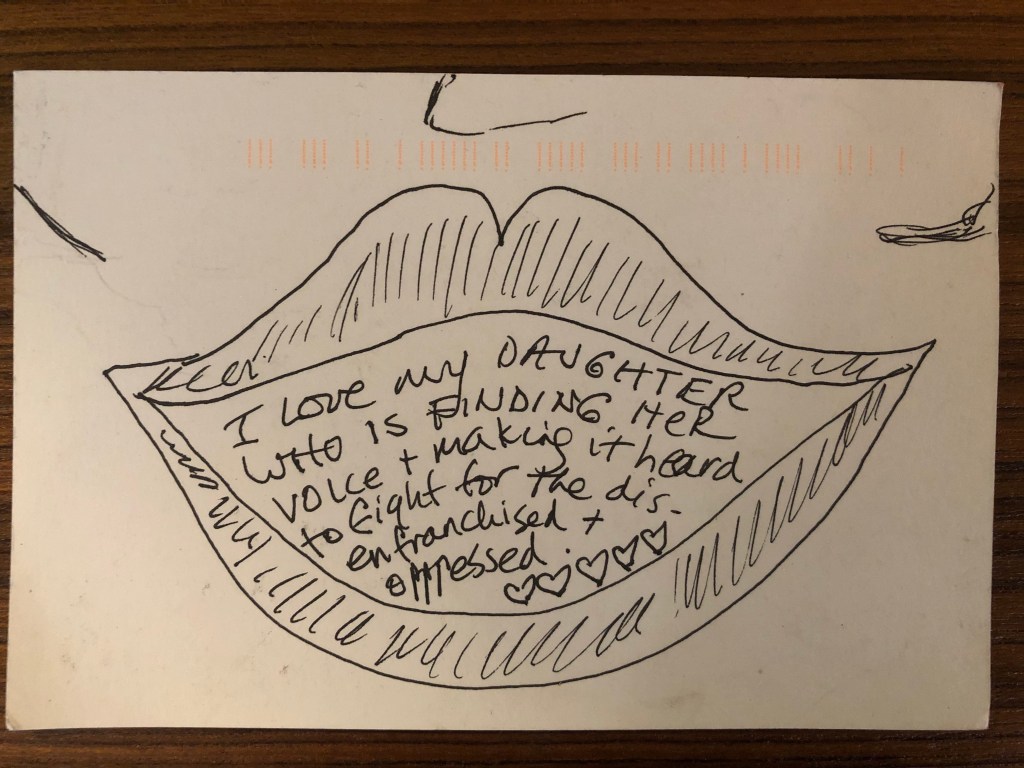 I LOVE my DAUGHTER
WHO IS FINDING HER
VOICE + making it heard
to fight for the dis-
enfranchised +
oppressed. ♡♡♡♡♡